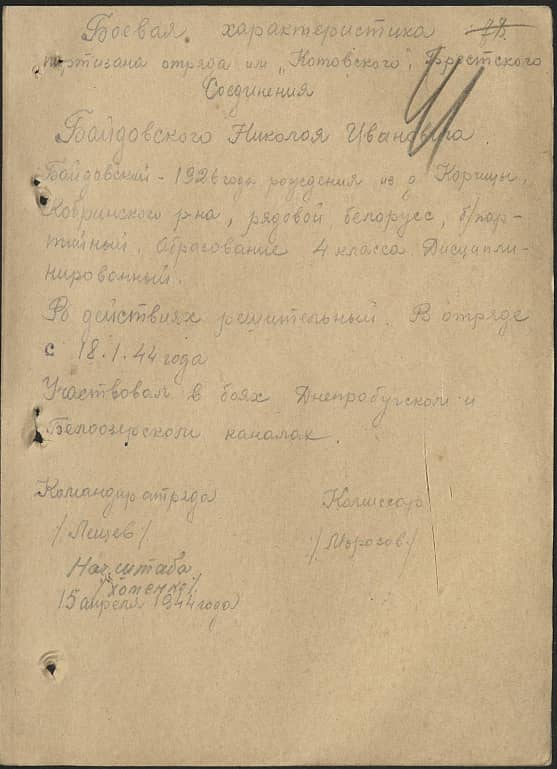 Боевая характеристика
партизана отряда им „Котовского", Брестского
Соединения
Байдовского Николая Ивановича
Байдовский - 1926 года рождения из д. Корицы,
Кобринского р-на, рядовой, белорусс, б/пар-
тийный. Образование 4 класса. Дисципли-
нированный.
В действиях решительный. В отряде
с 18.1.44 года
Участвовал в боях Днепробугском и
Белоозерском каналах.
Командир отряда Комиссар
/Лещев/ /Морозов/
Нач. штаба
15 апреля 1944 года